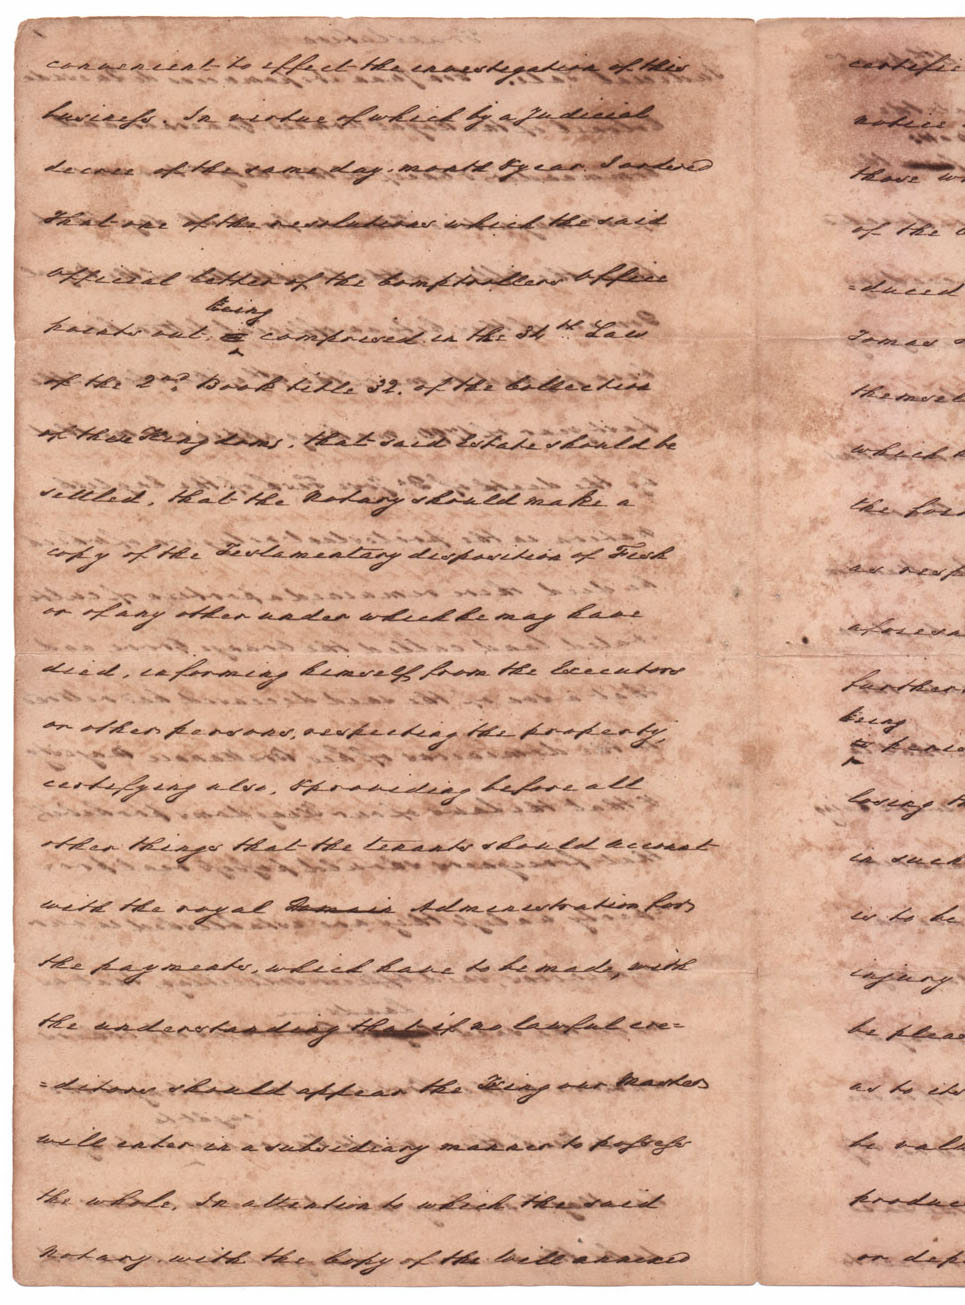 convenient to effect the investigation of this
business. In virtue of which by a Judicial
decree of the same day, month & year I ordered
that one of the resolutions which the said
official letter of the Comptrollers Office
being
points out, comprised in the 34th Law
of the 2nd Book title 32. of the Collection
of these Kingdoms. that said Estate should be
settled, that the Notary should make a
copy of the Testementary disposition of Fish
or of any other under which he may have
died, informing himself from the Executors
or other persons, respecting the property,
certifying also, & providing before all
other things that the tenants should account
with the royal Administration for
the payments, which have to be made, with
the understanding that if no lawful cre=
=ditors should appear the King our Master
will enter in a subsidiary manner to possess
the whole, In attention to which the said
Notary with the Copy of the Will annexed
notice
those
of the
=duced
Tomas
themsel
which
the
as resp
aforesa
further
being
losing
in such
is to be
injury
be pleas
as to its
be valu
produc
or dep